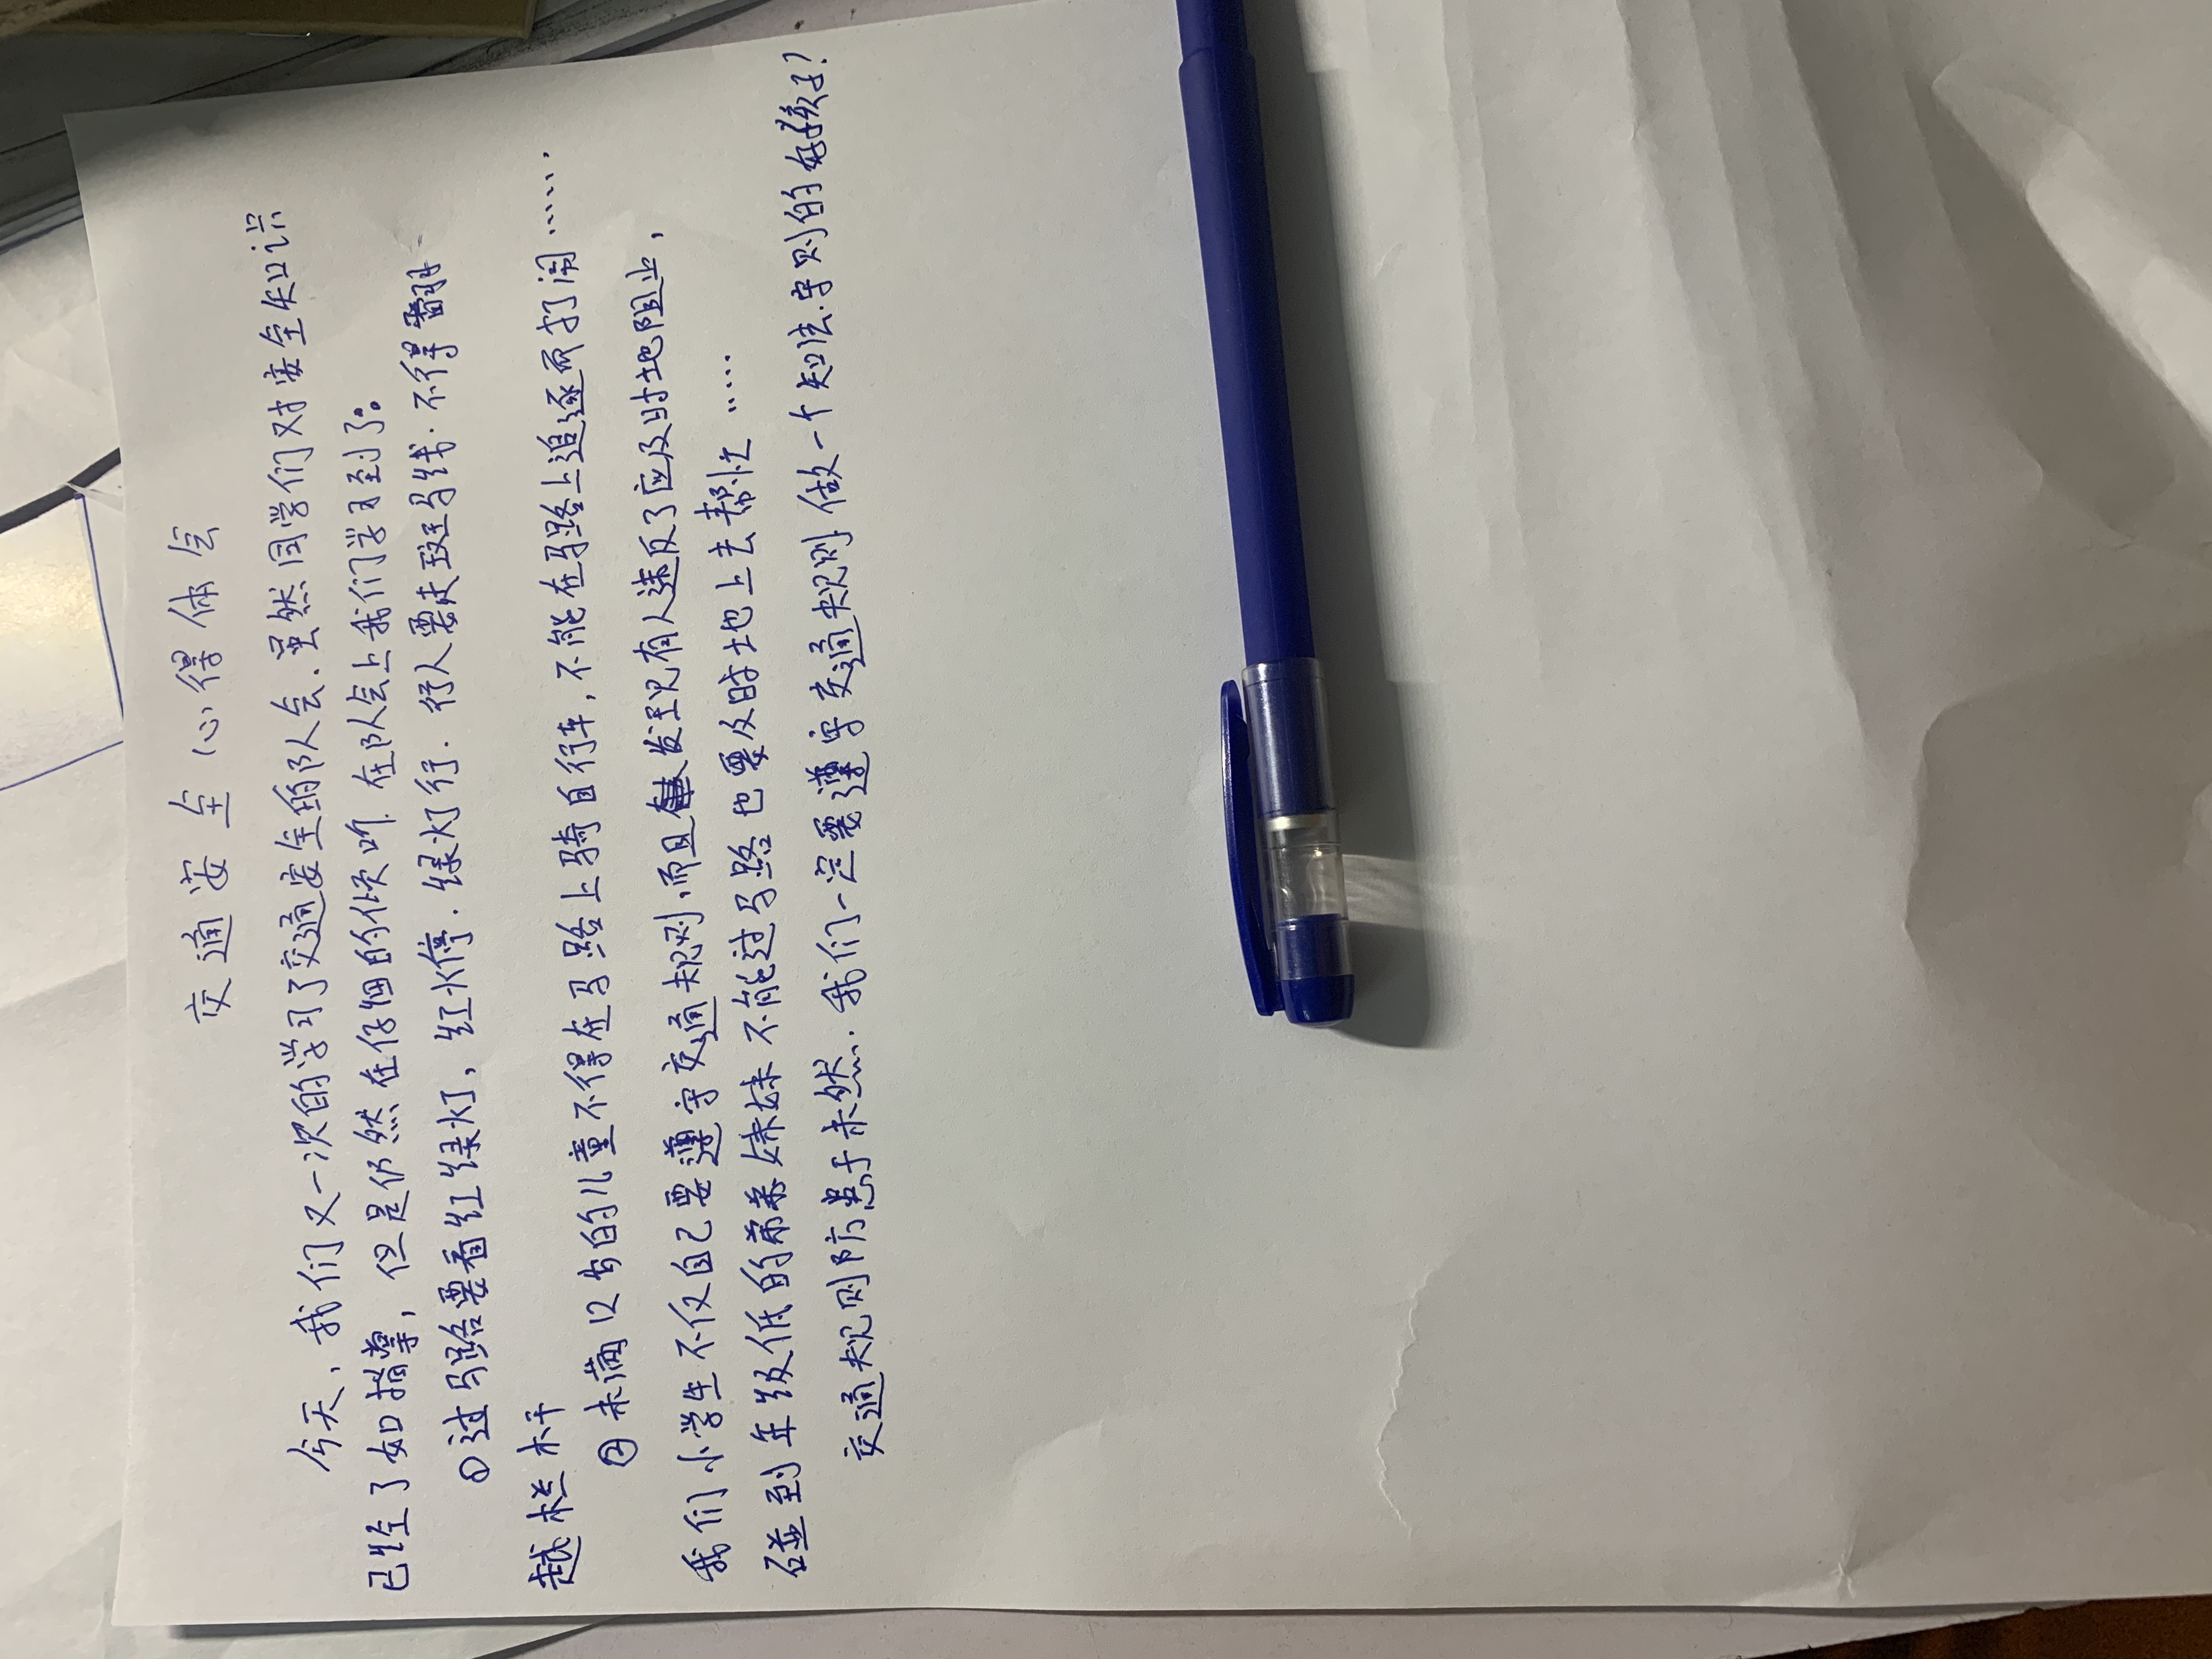 交通安全心得体会
今天，我们又一次的学习了交通安全的队会．虽然同学们对安全知识
已经了如指掌，但是仍然在仔细的倾听．在队会上我们学习到了。
①过马路要看红绿灯，红火停．绿灯行．行人要走斑马线．不得翻
越栏杆
②未满12岁的儿童不得在马路上骑自行车，不能在马路上追逐而打闹……
我们小学生不仅自己要遵守交通规则．而且发现有人违反了应及时地阻止，
碰到年级低的弟弟妹妹不能过马路也要及时地上去帮忙……
交通规则防患于未然．我们一定要遵守交通规则做一个知法．守则的好孩子？